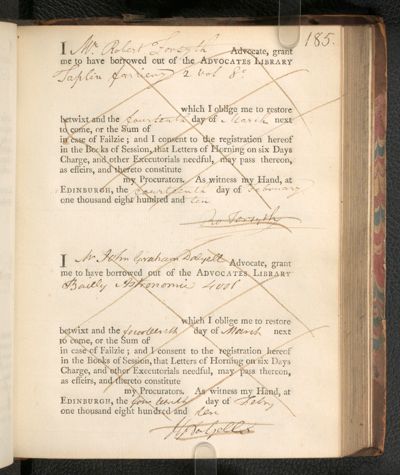 185.
I Mr. Robert Forsyth Advocate, grant
me to have borrowed out of the ADVOCATES LIBRARY
Taplin farriery 2 vol 8o
which I oblige me to restore
betwixt and the fourteenth day of March next
to come, or the Sum of
in case of Failzie; and I consent to the registration hereof
in the Books of Session, that Letters of Horning on six Days
Charge, and other Executorials needful, may pass thereon,
as effeirs, and thereto constitute
my Procurators. As witness my Hand, at
EDINBURGH, the fourteenth day of February
one thousand eight hundred and ten
Ro Forsyth
I Mr John Graham Dalyell Advocate, grant
me to have borrowed out of the ADVOCATES LIBRARY
Bailly Astronomie 4 vol
which I oblige me to restore
betwixt and the fourteenth day of March next
to come, or the Sum of
in case of Failzie; and I consent to the registration hereof
in the Books of Session, that Letters of Horning on six Days
Charge, and other Executorials needful, may pass thereon,
as effeirs, and thereto constitute
my Procurators. As witness my Hand, at
EDINBURGH, the fourteenth day of Feby
one thousand eight hundred and ten